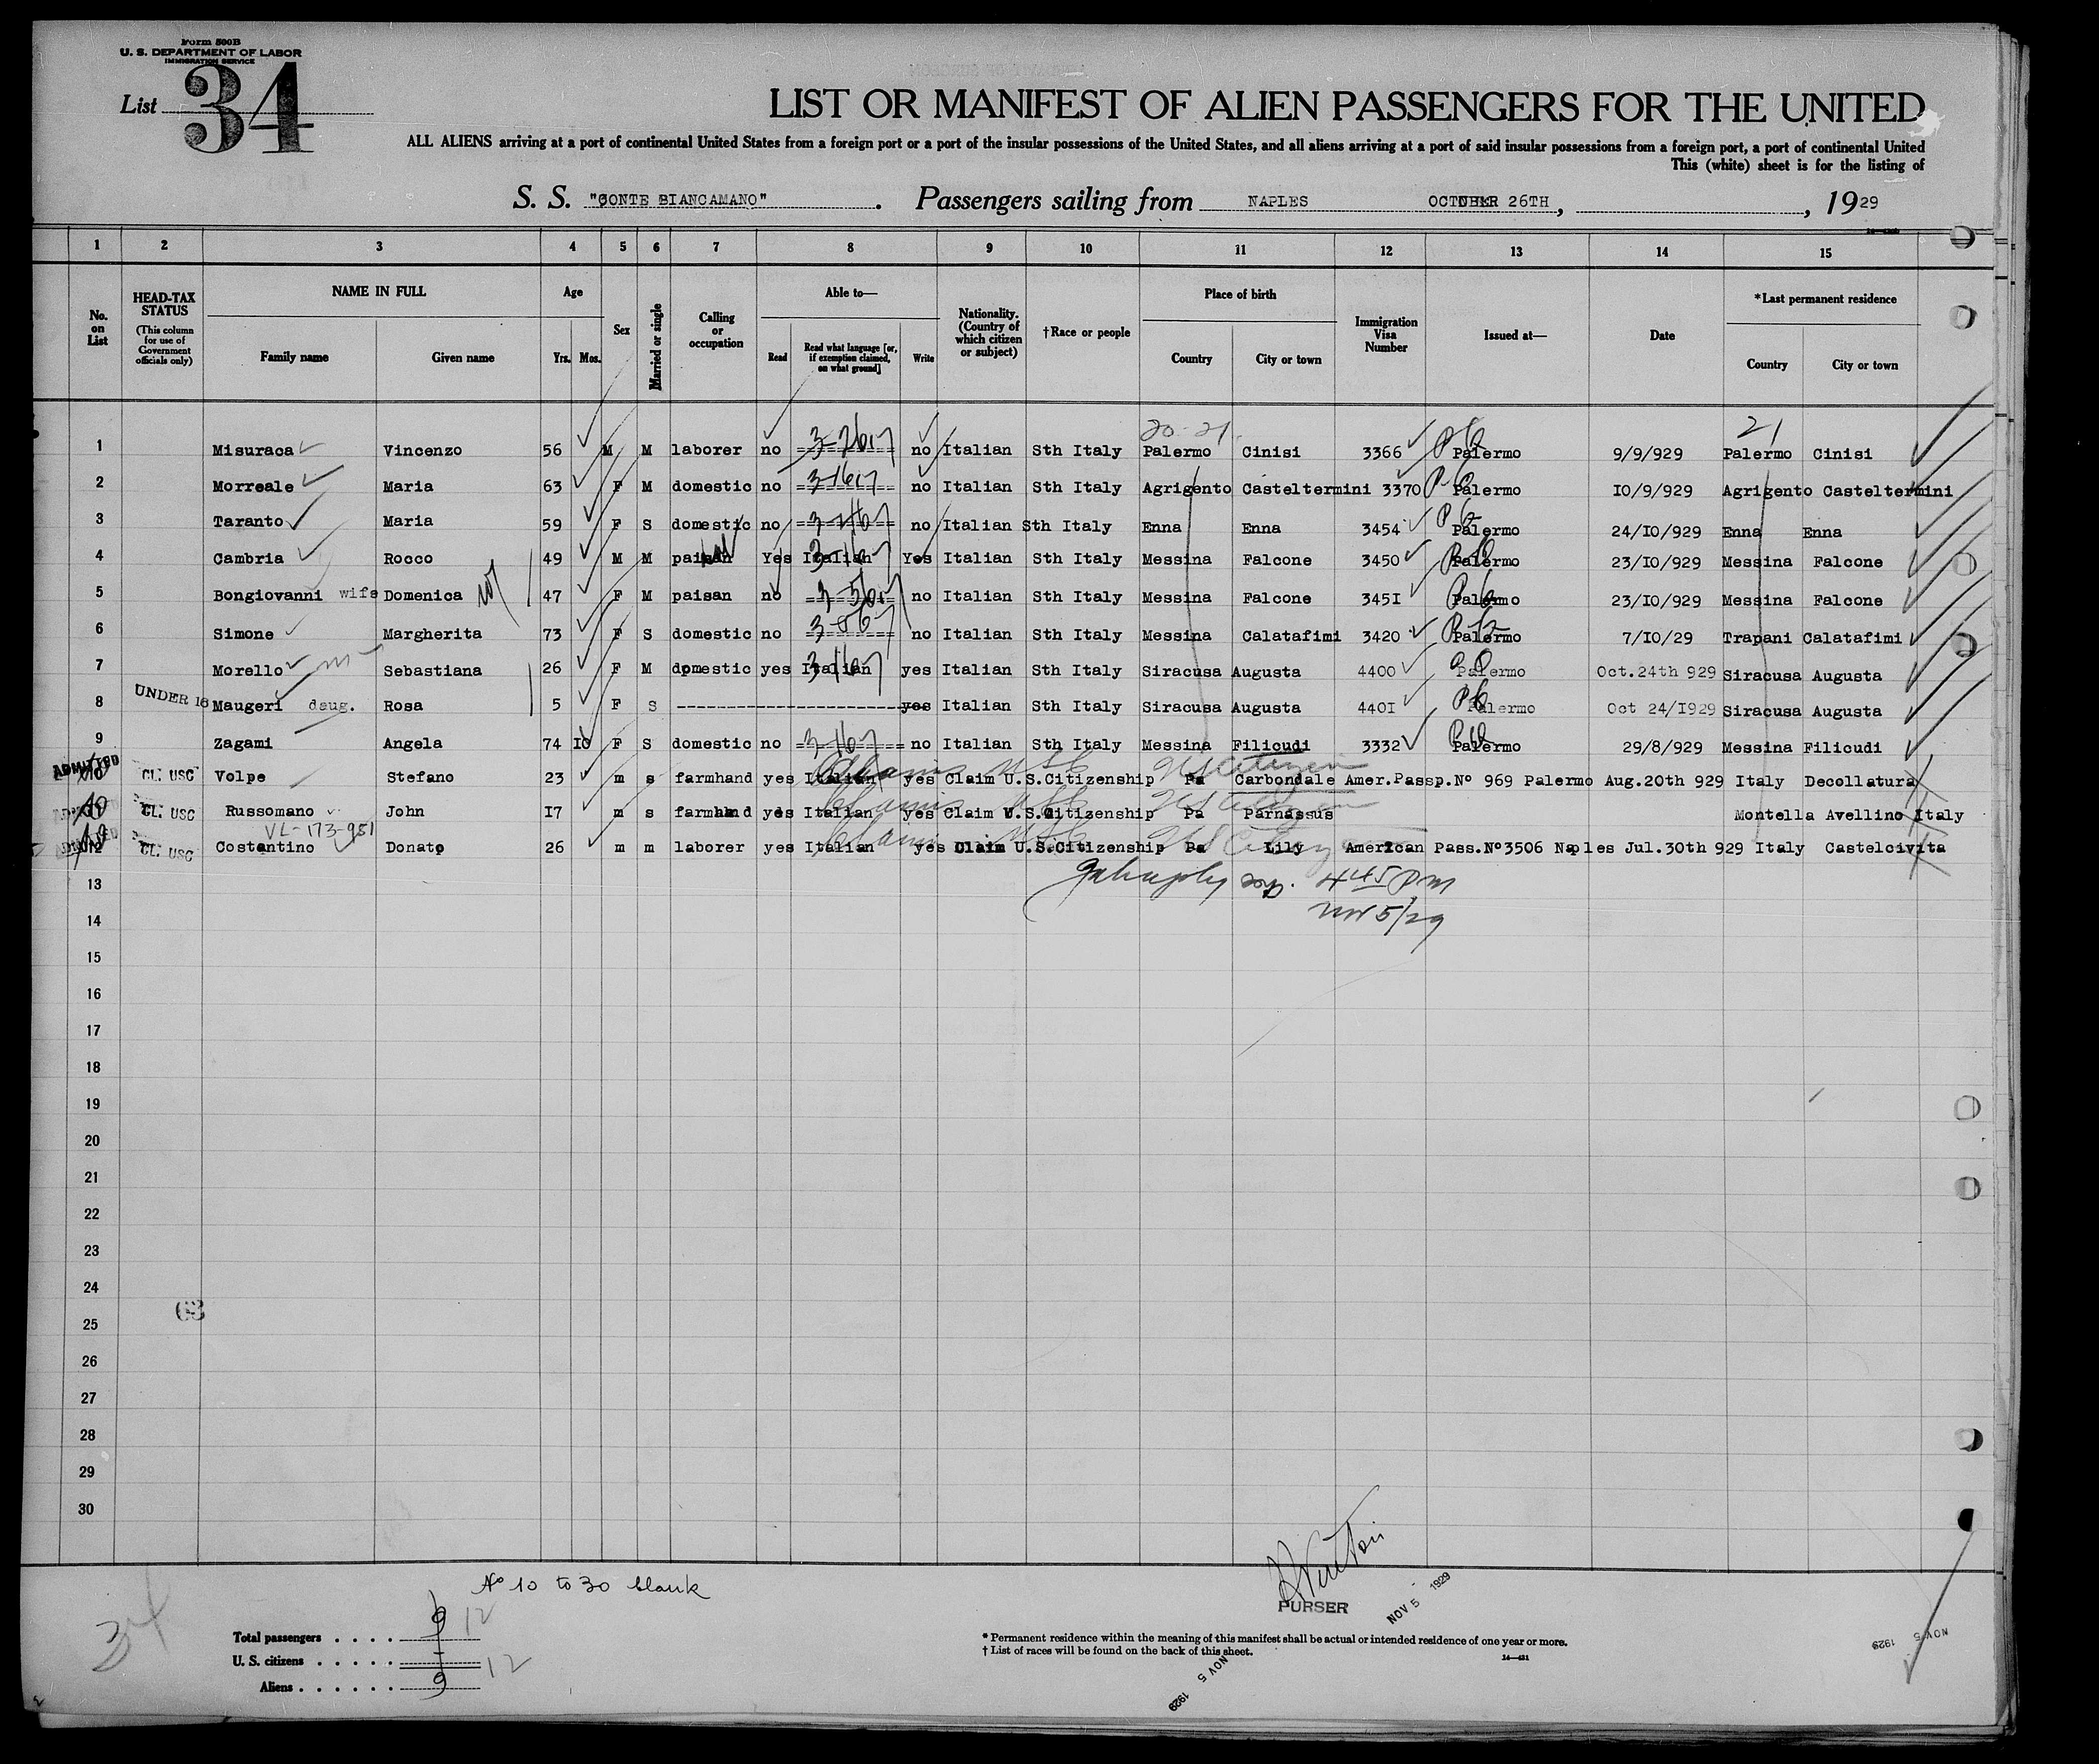 Form 500B
U. S. DEPARTMENT OF LABOR
IMMIGRATION SERVICE
List 34
LIST OR MANIFEST OF ALIEN PASSENGERS FOR THE UNITED
ALL ALIENS arriving at a port of continental United States from a foreign port or a port of the insular possessions of the United States, and all aliens arriving at a port of said insular possessions from a foreign port, a port of continental United
This (white) sheet is for the listing of
S. S. "CONTE BIANCAMANO". Passengers sailing from NAPLES OCTOBER 26TH, , 1929
1 2 3 4 5 6 7 8 9 10 11 12 13 14 15
No. on List
HEAD-TAX STATUS (This column for use of Government officials only)
NAME IN FULL
Family name Given name
Age
Yrs. Mos.
Sex
Married or single
Calling or occupation
Able to—
Read Read what language [or, if exemption claimed, on what ground] Write
Nationality. (Country of which citizen or subject)
†Race or people
Place of birth
Country City or town
Immigration Visa Number
Issued at—
Date
*Last permanent residence
Country City or town
20-21 21
1 Misuraca Vincenzo 56 M M laborer no no Italian Sth Italy Palermo Cinisi 3366 Palermo 9/9/929 Palermo Cinisi
2 Morreale Maria 63 F M domestic no no Italian Sth Italy Agrigento Casteltermini 3370 Palermo 10/9/929 Agrigento Casteltermini
3 Taranto Maria 59 F S domestic no no Italian Sth Italy Enna Enna 3454 Palermo 24/10/929 Enna Enna
4 Cambria Rocco 49 M M paisan Yes Italian Yes Italian Sth Italy Messina Falcone 3450 Palermo 23/10/929 Messina Falcone
5 Bongiovanni wife Domenica 47 F M paisan no no Italian Sth Italy Messina Falcone 3451 Palermo 23/10/929 Messina Falcone
6 Simone Margherita 73 F S domestic no no Italian Sth Italy Messina Calatafimi 3420 Palermo 7/10/29 Trapani Calatafimi
7 Morello Sebastiana 26 F M domestic yes Italian yes Italian Sth Italy Siracusa Augusta 4400 Palermo Oct.24th 929 Siracusa Augusta
UNDER 16
8 Maugeri daug. Rosa 5 F S yes Italian Sth Italy Siracusa Augusta 4401 Palermo Oct 24/1929 Siracusa Augusta
9 Zagami Angela 74 10 F S domestic no no Italian Sth Italy Messina Filicudi 3332 Palermo 29/8/929 Messina Filicudi
ADMITTED
10 CL. USC Volpe Stefano 23 m s farmhand yes Italian yes Claim U.S.Citizenship Pa Carbondale Amer.Passp.Nº 969 Palermo Aug.20th 929 Italy Decollatura
CL. USC Russomano John 17 m s farmhand yes Italian yes Claim U.S.Citizenship Pa Parnassus Montella Avellino Italy
VL-173-951
12 CL. USC Costantino Donato 26 m m laborer yes Italian yes Claim U.S.Citizenship Pa Lily American Pass.Nº3506 Naples Jul.30th 929 Italy Castelcivita
13 445 Pm
14 Nov 5/29
15
16
17
18
19
20
21
22
23
24
63
25
26
27
28
29
30
Nº 10 to 30 blank
34
Total passengers . . . . 9 12
U. S. citizens . . . . . 12
Aliens . . . . . . 9
PURSER
NOV 5 - 1929
* Permanent residence within the meaning of this manifest shall be actual or intended residence of one year or more.
† List of races will be found on the back of this sheet.
14—431
NOV 5 1929
NOV 5 1929